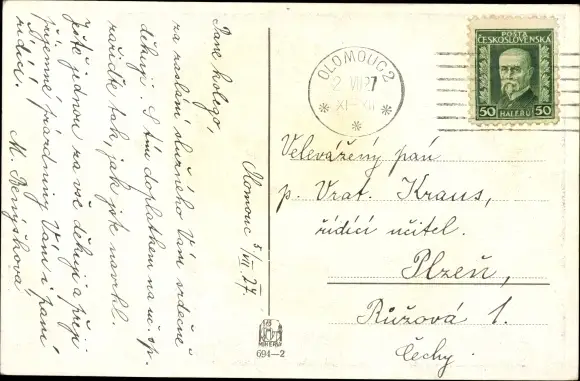 Olomouc 5/VII 27
Pane kolego,
za zaslání služného Vám srdečně
děkuji. S tím doplatkem na
zařídí tak, jak jste navrhl.
Ještě jednou za vše děkuji a přeji
příjemné prázdniny Vám i paní
řídící. M.
OLOMOUC 2
2 VII 27
XI-XII
POŠTA
ČESKOSLOVENSKÁ
50 50
HALÉŘŮ
Velevážený pan
p. Vrat. Kraus,
řídící učitel.
Plzeň,
Růžová 1.
Čechy.
694-2